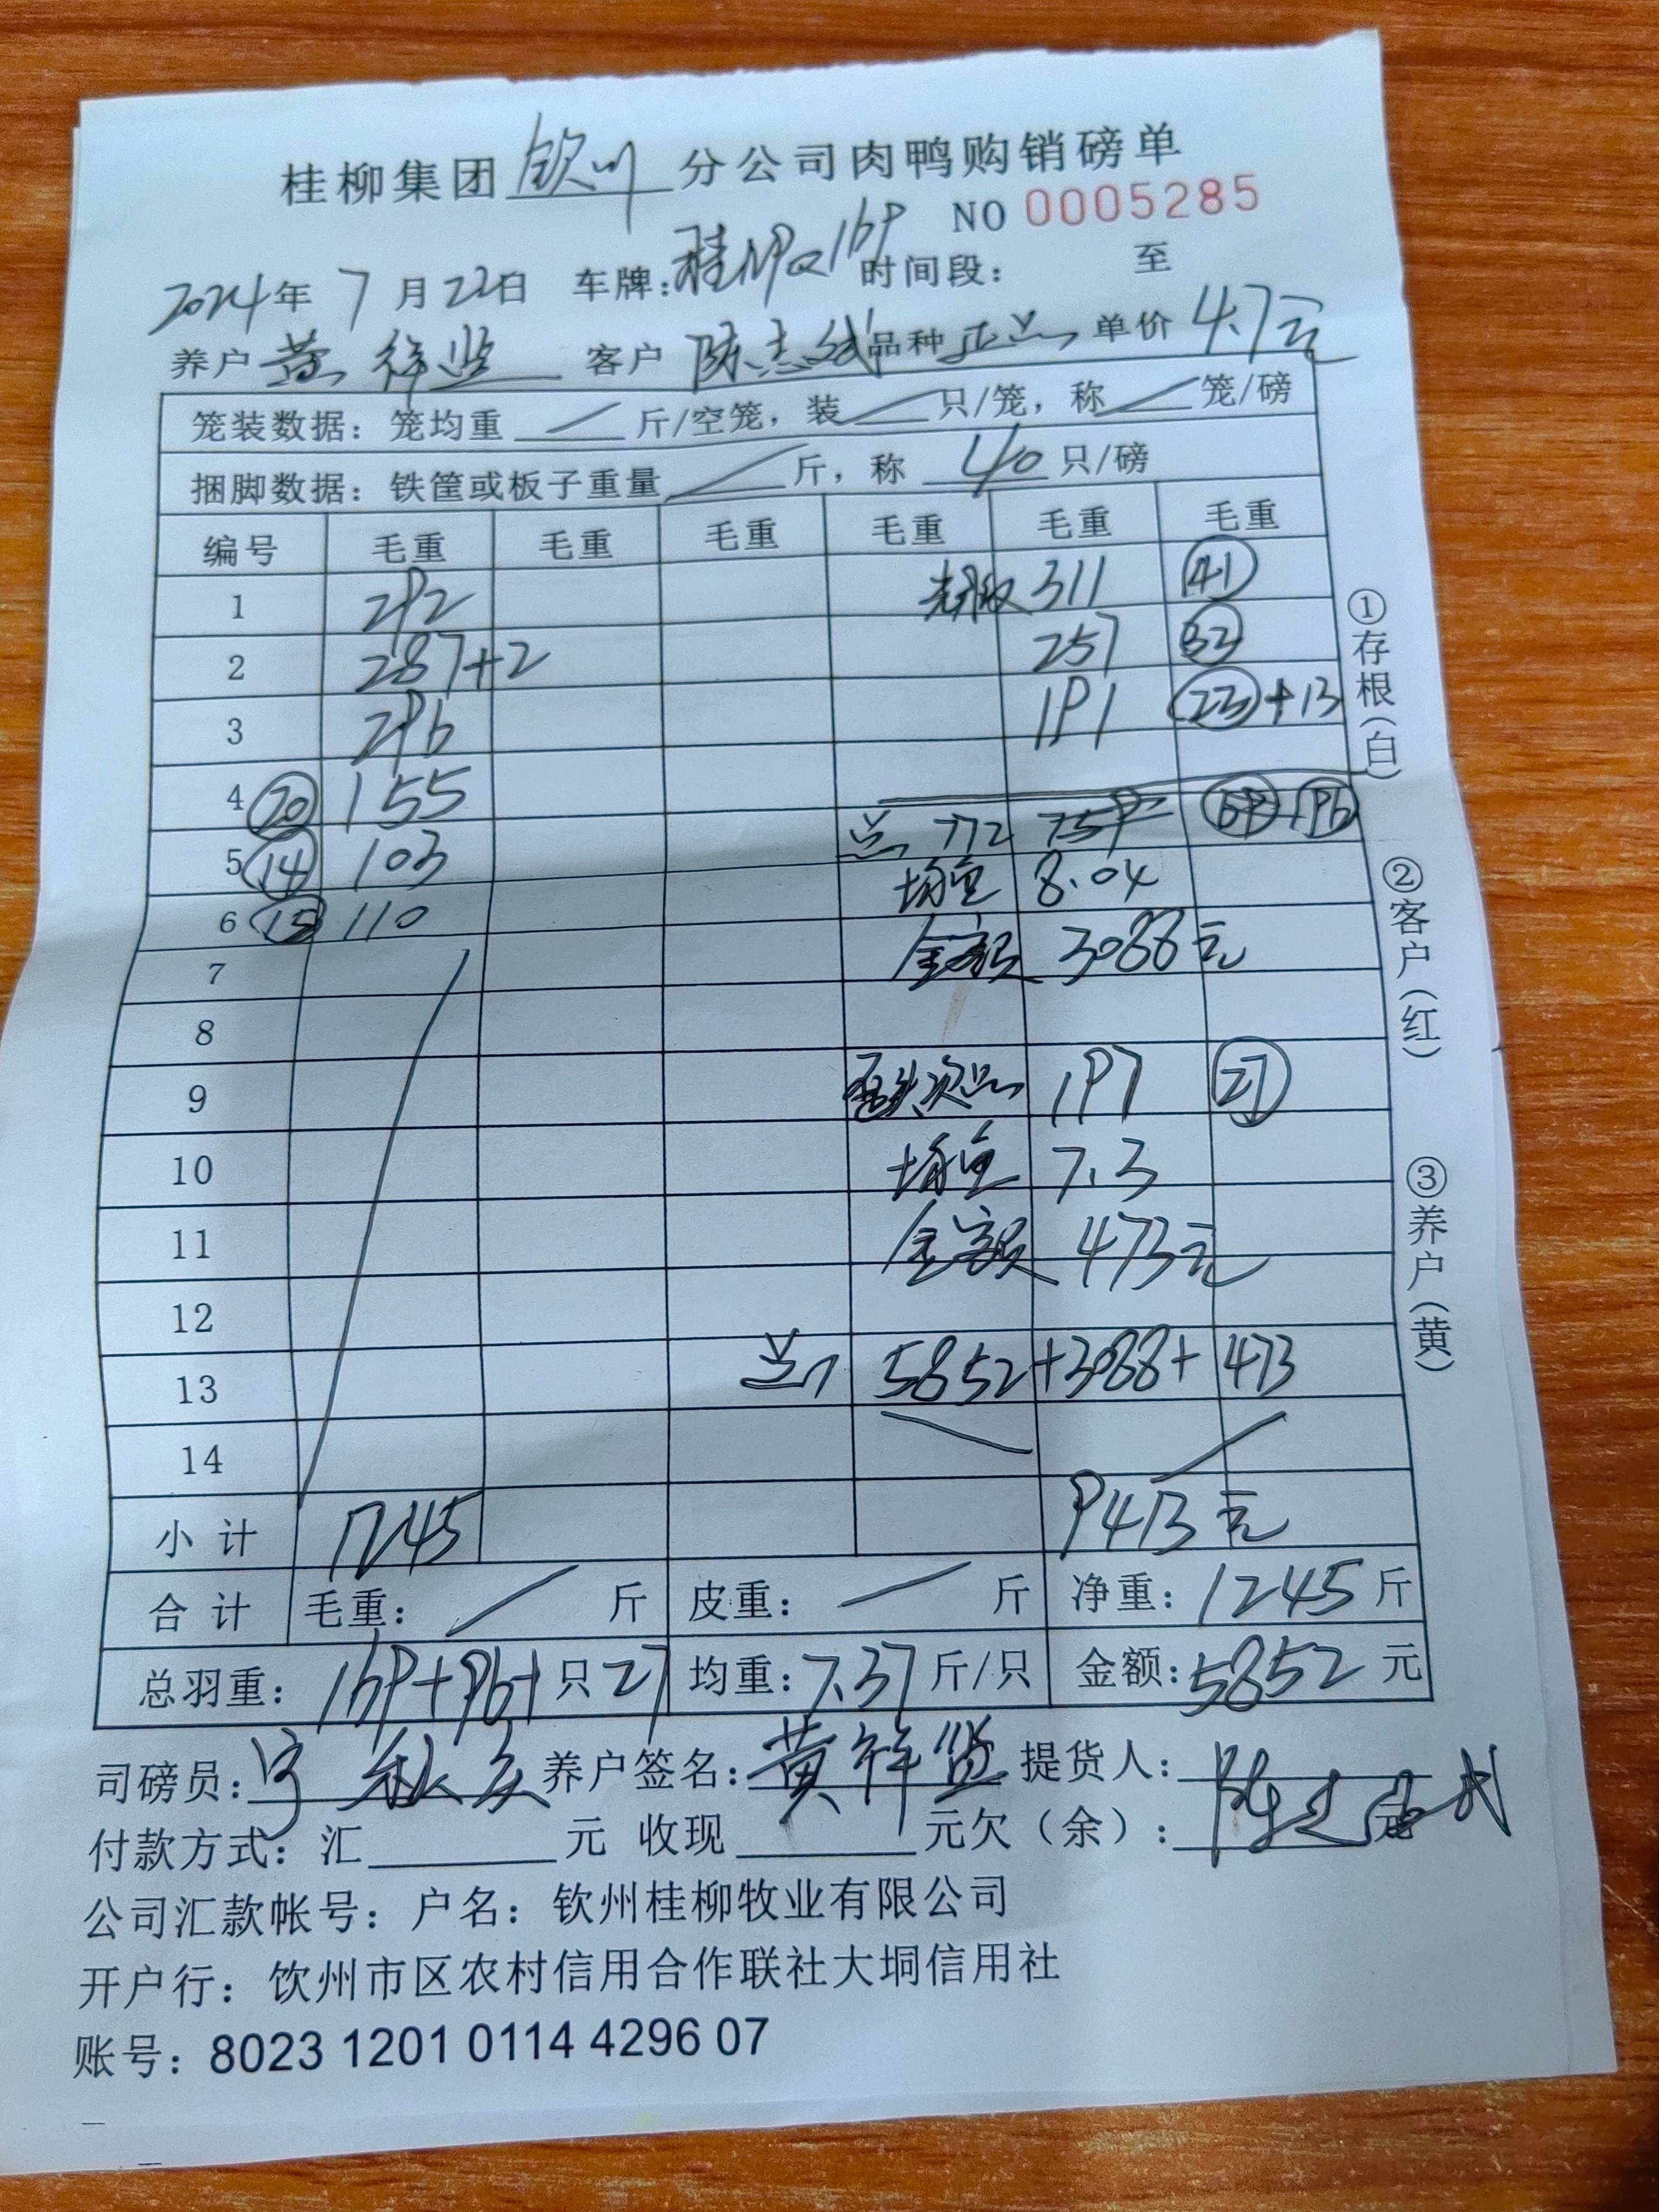 桂柳集团 钦州 分公司肉鸭购销磅单
NO 0005285
2024年 7 月 22日 车牌: 时间段: 至
养户 黄祥 客户 陈志 品种 正品 单价 4.7元
笼装数据: 笼均重 / 斤/空笼, 装 / 只/笼, 称 / 笼/磅
捆脚数据: 铁筐或板子重量 / 斤, 称 40 只/磅
编号 毛重 毛重 毛重 毛重 毛重 毛重
1 292 311 41
2 287+2 257 32
3 296 191 23 +13
4 20 155
5 14 103 总 772 759 96
6 15 110 均重 8.04
7 金额 3088元
8
9 次品 197 27
10 均重 7.3
11 金额 473元
12
13 总 5852+3088+473
14
小计 1245 9413元
合计 毛重: / 斤 皮重: / 斤 净重: 1245 斤
总羽重: 169+96+ 只 27 均重: 7.37 斤/只 金额: 5852 元
司磅员: 养户签名: 黄祥 提货人: 陈
付款方式: 汇 元 收现 元欠(余): 元
公司汇款帐号: 户名: 钦州桂柳牧业有限公司
开户行: 饮州市区农村信用合作联社大垌信用社
账号: 8023 1201 0114 4296 07
①存根(白)
②客户(红)
③养户(黄)